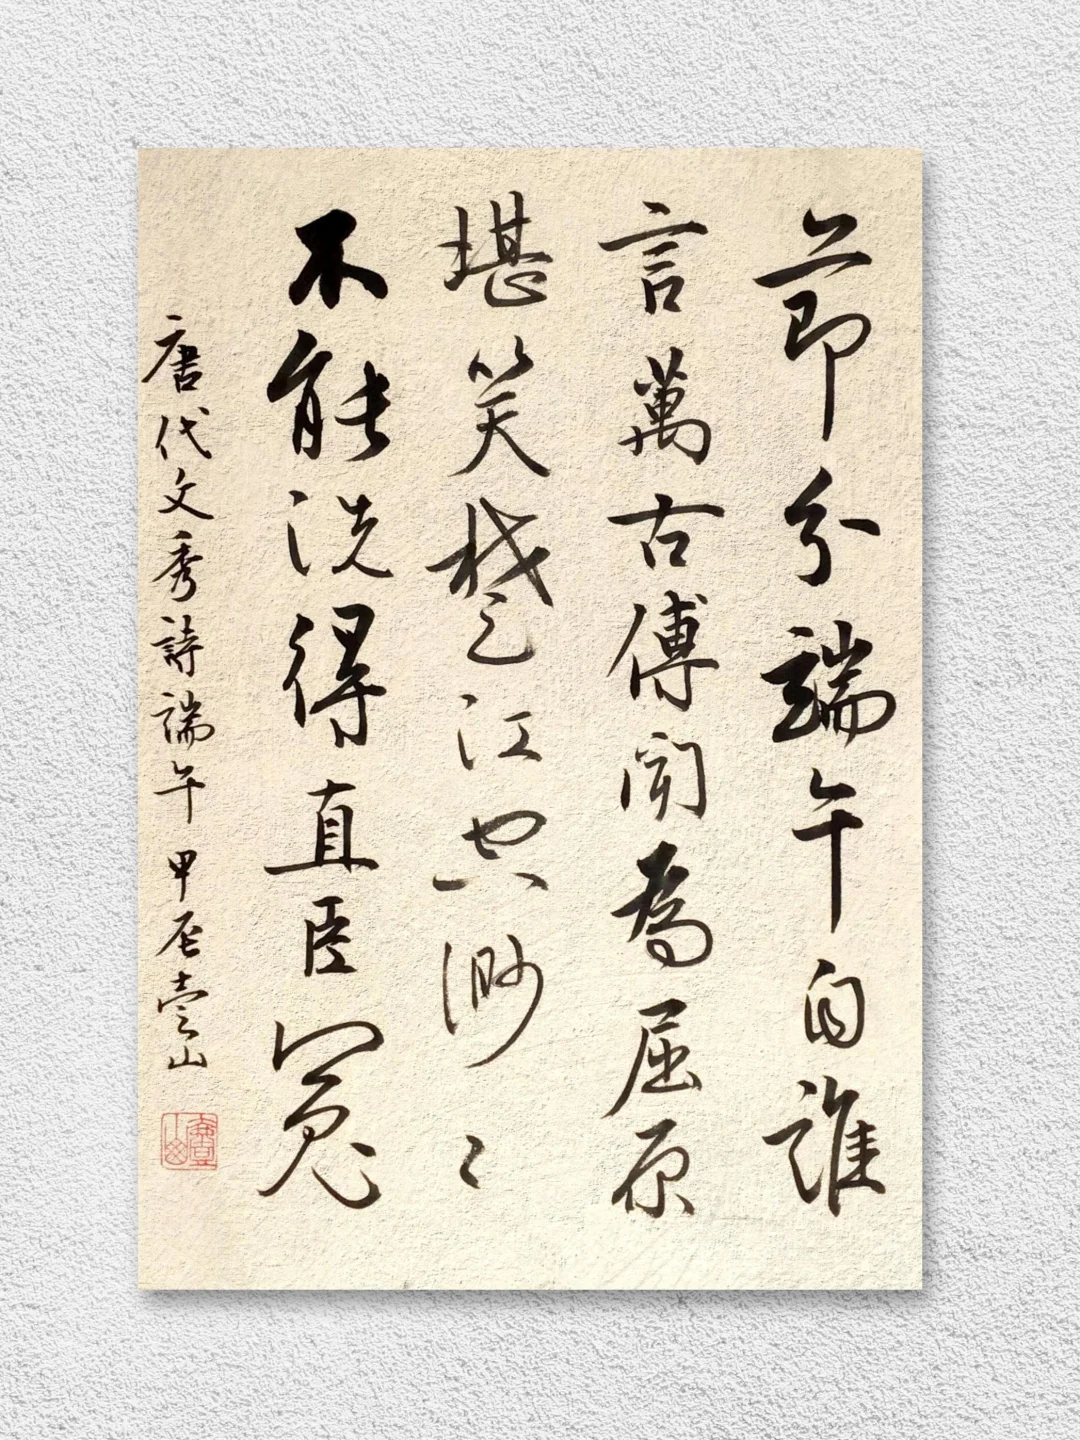 節分端午自誰
言萬古傳聞為屈原
堪笑楚江空渺〻
不能洗得直臣冤
唐代文秀詩端午 甲辰壹山